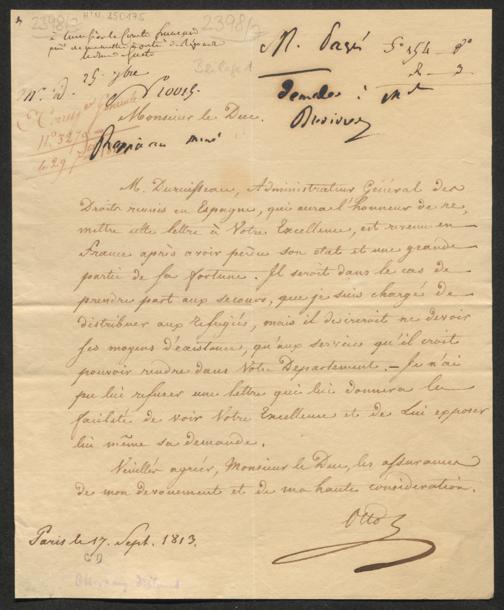 2398/2
H.N. 250175
2398/2
Beilage 1
à
M. Pagès
N. d. 25. 7bre
N° 10015
N° 3270
le 29
Monsieur le Duc.
M. Duruisseau, Administrateur Général des
Droits réunis en Espagne, qui aura l'honneur de re,
mettre cette lettre à Votre Excellence, est revenu en
France après avoir perdu son état et une grande
partie de sa fortune. Il seroit dans le cas de
prendre part aux secours, que je suis chargé de
distribuer aux refugiés, mais il desireroit ne devoir
ses moyens d'existence, qu'aux services qu'il croit
pouvoir rendre dans Votre Département. – Je n'ai
pu lui refuser une lettre qui lui donnera la
facilité de voir Votre Excellence et de Lui exposer
lui même sa demande.
Veuillés agréer, Monsieur le Duc, les assurances
de mon devouement et de ma haute consideration.
Otto
Paris le 17. Sept. 1813.